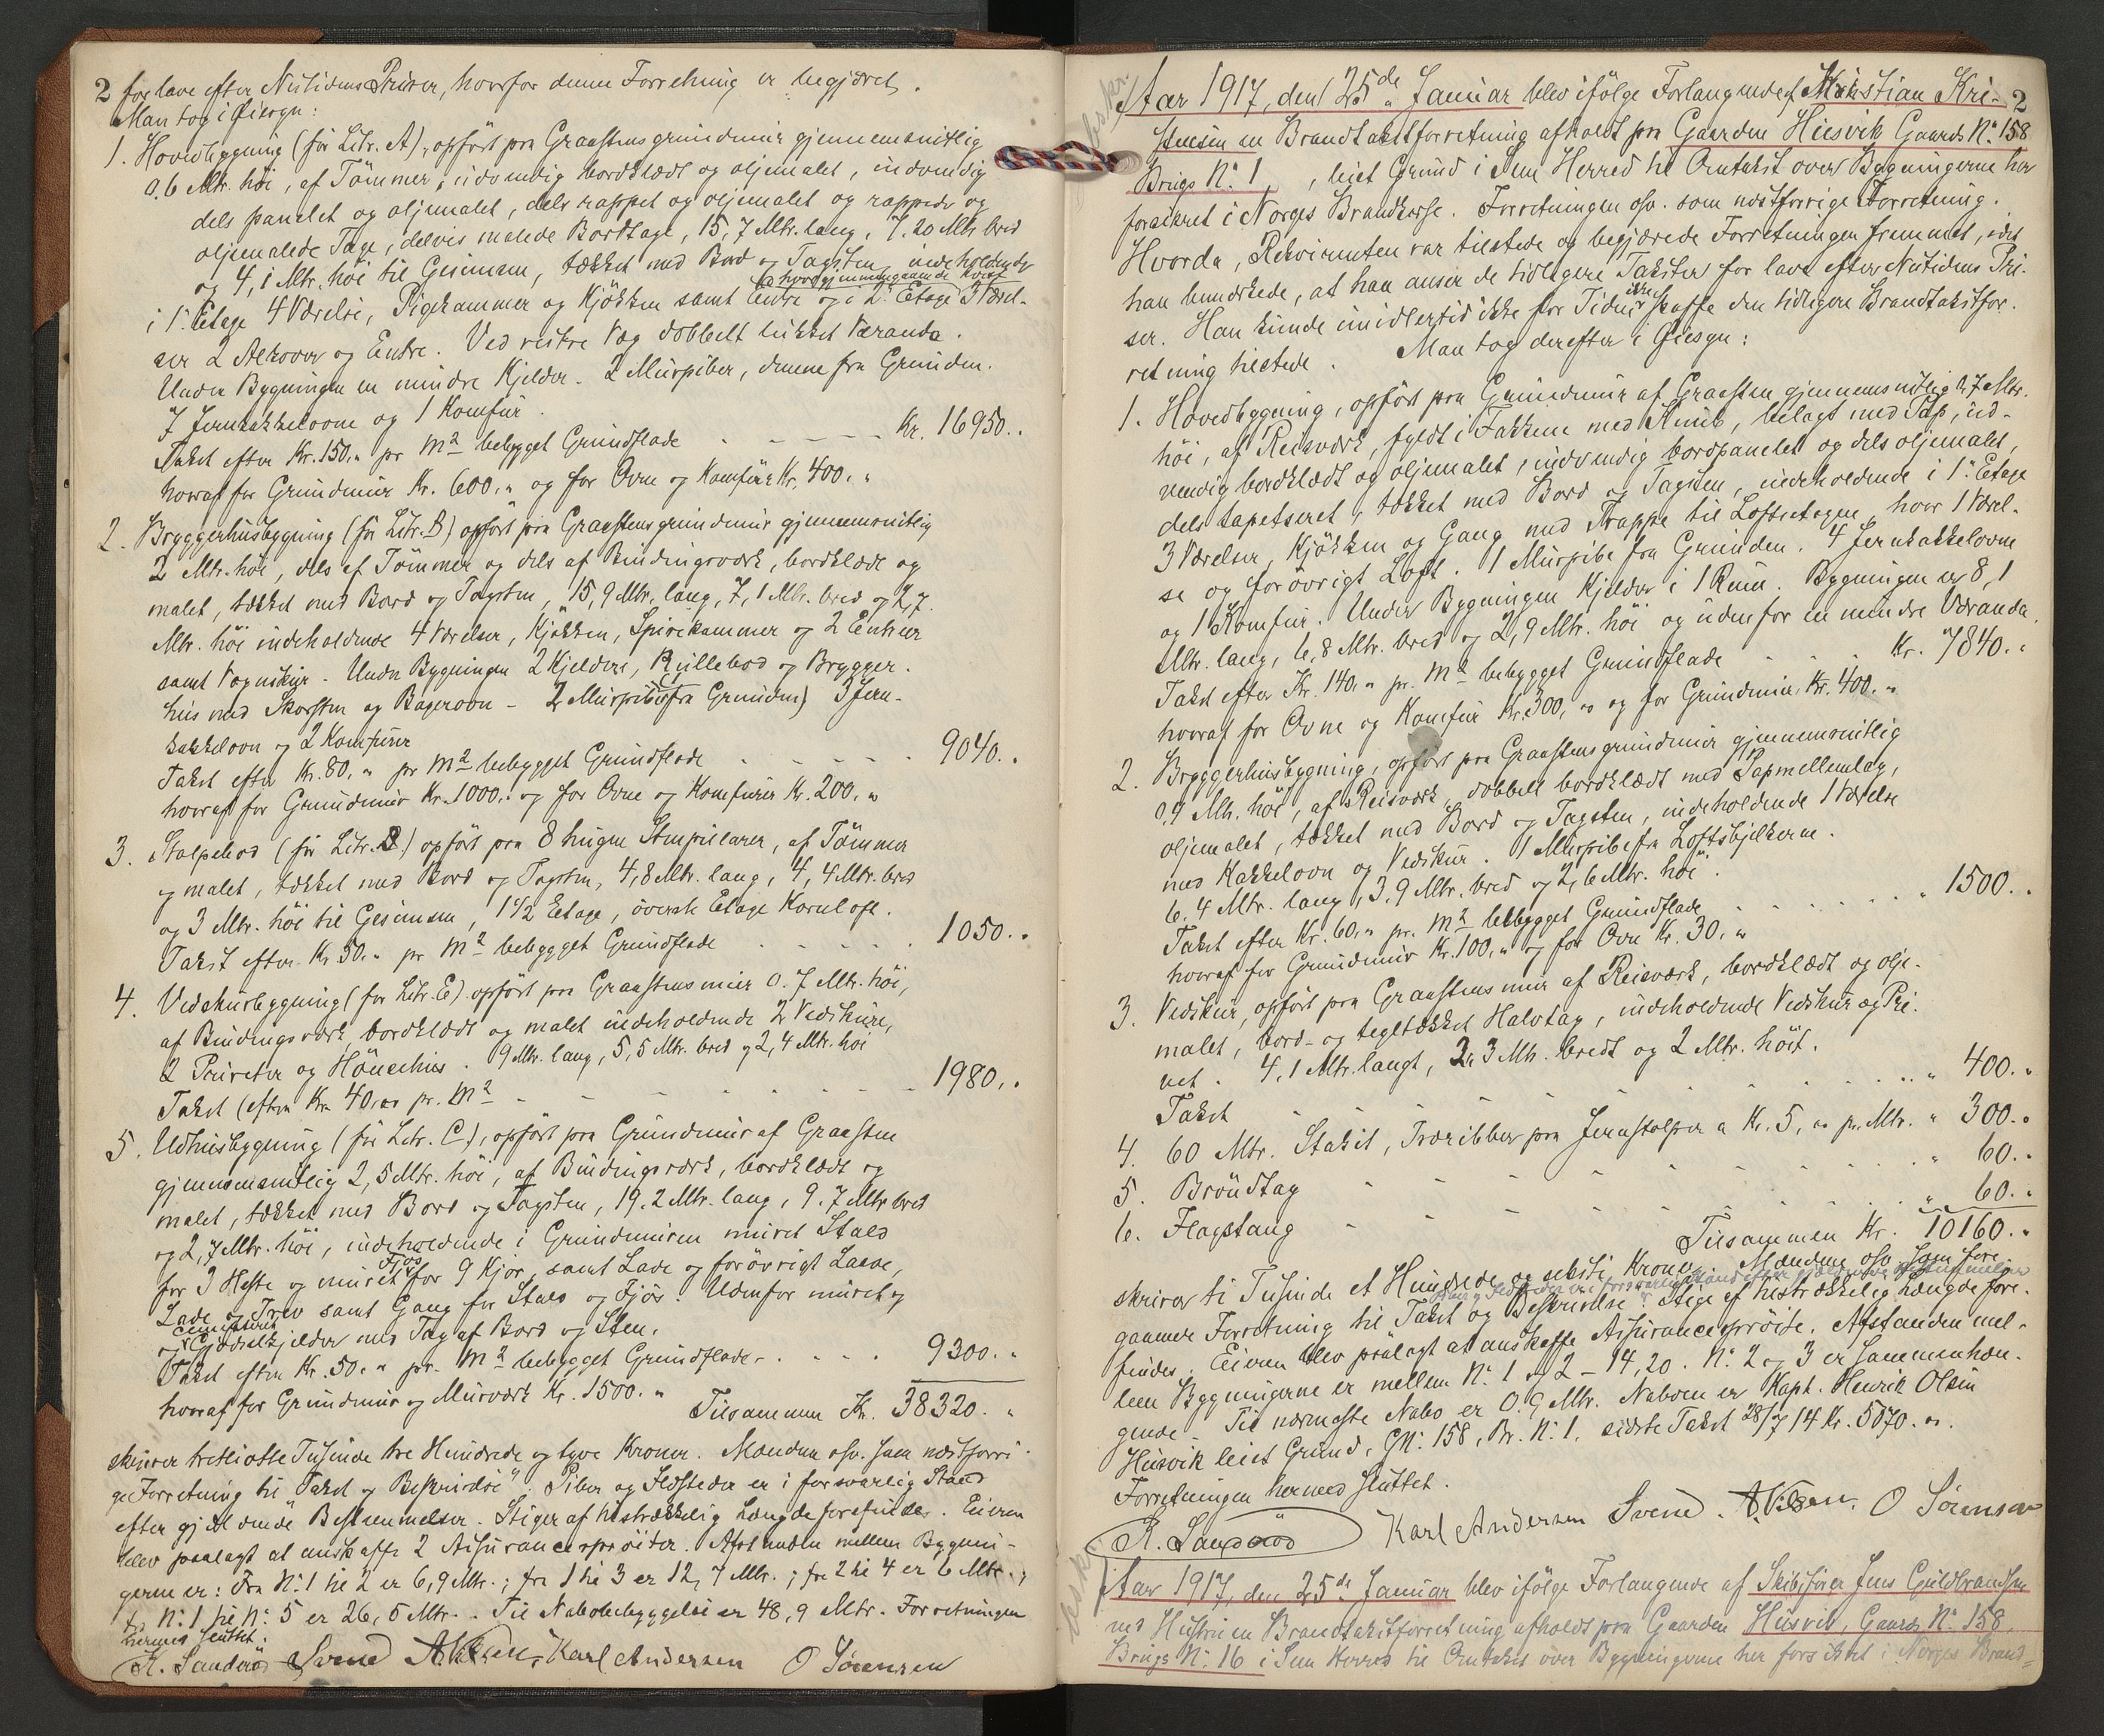 2 for lave efter Nutidens Priser, hvorfor denne Forretning er begjæret.
Man tog i Øiesyn:
1. Hovedbygning (før Litr. A), opført paa Graastensgrundmur gjennemsnitlig
0,6 Mtr. høi, af Tømmer, udvendig bordklædt og oljemalet, indvendig
dels panelet og oljemalet, dels rappet og oljemalet og rappede og
oljemalede Tage, delvis malede Bordtage, 15,7 Mtr. lang, 7.20 Mtr bred
og 4,1 Mtr. høi til Gesimsen, tækket med Bord og Tagsten, indeholdende
i 1. Etage 4 Værelse, Pigekammer og Kjøkken samt Entre og i 2. Etage 3 Værel-
ser 2 Alkover og Entre. Ved vestre Væg dobbelt lukket Veranda.
Under Bygningen en mindre Kjelder. 2 Murpiber, denne fra Grunden.
7 Jernkakkelovne og 1 Komfur.
Takst efter Kr. 150,„ pr M² bebygget Grundflade - - - - - Kr. 16950..
hvoraf for Grundmur Kr. 600,„ og for Ovne og Komfur Kr. 400,„
2. Bryggerhusbygning (før Litr. B) opført paa Graastensgrundmur gjennemsnitlig
2 Mtr. høi, dels af Tømmer og dels af Bindingsværk, bordklædt og
malet, tækket med Bord og Tagsten, 15,9 Mtr. lang, 7,1 Mtr. bred og 2,7.
Mtr. høi indeholdende 4 Værelser, Kjøkken, Spisekammer og 2 Entreer
samt Vognskjur. Under Bygningen 2 Kjeldere, Rullebod og Brygger-
hus med Skorsten og Bagerovn - 2 Murpiber (fra Grunden) 3 Jern-
kakkelovn og 2 Komfurer
Takst efter Kr. 80,„ pr M² bebygget Grundflade - - - - - 9040..
hvoraf for Grundmur Kr. 1000.„ og for Ovne og Komfurer Kr. 200,„
3. Stolpebod (før Litr. D.) opført paa 8 hugne Stenpillarer, af Tømmer
og malet, tækket med Bord og Tagsten, 4,8 Mtr. lang, 4,4 Mtr. bred
og 3 Mtr. høi til Gesimsen, 1 1/2 Etage, øverste Etage Kornloft.
Takst efter Kr 50.„ pr M² bebygget Grundflade - - - - - 1050..
4. Vedskurbygning (før Litr. E) opført paa Graastensmur 0.7 Mtr. høi,
af Bindingsværk, bordklædt og malet indeholdende 2 Vedskure,
2 Priveter og Hönsehus. 9 Mtr. lang, 5,5 Mtr. bred og 2,4 Mtr. høi
Takst (efter Kr. 40,„ pr. M² - - - - - - 1980..
5. Udhusbygning (før Litr. C), opført paa Grundmur af Graasten
gjennemsnitlig 2,5 Mtr. høi, af Bindingsværk, bordklædt og
malet, tækket med Bord og Tagsten, 19.2 Mtr. lang, 9.7 Mtr bred
og 2,7 Mtr. høi, indeholdende i Grundmuren muret Stald
for 3 Heste og muret Fjös for 9 Kjør, samt Lade og forøvrigt Laave,
Lade og Trev samt Gang for Stald og Fjös. Udenfor muret og
cementeret
og Gjødselkjelder med Tag af Bord og Sten.
Takst efter Kr. 50.„ pr. M² bebygget Grundflade - . . . . 9300. „
hvoraf for Grundmur og Murværk Kr. 1500. „
Tilsammen Kr. 38320. „
skriver trettiotte Tusinde tre Hundrede og tyve Kroner. Mændene osv. som næstforri-
ge Forretning til "Takst og Beskrivelse". Piber og Ildsteder er i forsvarlig Stand
efter gjældende Bestemmelser. Stiger af tilstrækkelig Længde forefindes. Eieren
blev paalagt at anskaffe 2 Assurancesprøiter. Afstanden mellem Bygnin-
gerne er: Fra N: 1 til 2 er 6,9 Mtr.; fra 1 til 3 er 12,7 Mtr.; fra 2 til 4 er 6 Mtr.;
fra N: 1 til N: 5 er 26,5 Mtr. . Til Nabobebyggelse er 48,9 Mtr. Forretningen
hermed sluttet.
K. Sanderød Svend A. Nilsen. Karl Andersen O Sørensen
Aar 1917, den 25de Januar blev ifølge Forlangende af Kristian Kri- 2
stensen en Brandtakstforretning afholdt paa Gaarden Husvik Gaards N: 158
Brugs N: 1, leiet Grund i Sem Herred til Omtakst over Bygningerne her
forsikret i Norges Brandkasse. Forretningen osv. som næstforrige Forretning.
Hvorda, Rekvirenten var tilstede og begjærede Forretningen fremmet, idet
han bemærkede, at han anser de tidligere Takster for lave efter Nutidens Pri-
ser. Han kunde imidlertid ikke for Tiden skaffe den tidligere Brandtakstfor-
retning tilstede. Man tog derefter i Øiesyn:
1. Hovedbygning, opført paa Grundmur af Graasten gjennemsnitlig 2,7 Mtr.
høi, af Reisværk, fyldt i Fakkene med Knub, belagt med Pap, ud-
vendig bordklædt og oljemalet, indvendig bordpanelet og dels oljemalet,
dels tapetseret, tækket med Bord og Tagsten, indeholdende i 1. Etage
3 Værelser, Kjøkken og Gang med Trappe til Loftsetagen, hvor 1 Værel-
se og forøvrigt Loft. 1 Murpibe fra Grunden. 4 Jernkakkelovne
og 1 Komfur. Under Bygningen Kjelder i 1 Rum. Bygningen er 8,1
Mtr. lang, 6,8 Mtr. bred og 2,9 Mtr. høi og udenfor en mindre Veranda.
Takst efter Kr. 140.„ pr. M² bebygget Grundflade - - - Kr. 7840. „
hvoraf for Ovne og Komfur Kr. 300, „ og for Grundmur Kr. 400. „
2. Bryggerhusbygning, opført paa Graastensgrundmur gjennemsnitlig
0,9 Mtr. høi, af Reisværk, dobbelt bordklædt med Papmellemlag,
oljemalet, tækket med Bord og Tagsten, indeholdende 1 Værelse
med Kakkelovn og Vedskur. 1 Murpibe fra Loftsbjelkerne.
6,4 Mtr. lang, 3,9 Mtr. bred og 2,6 Mtr. høi.
Takst efter Kr. 60,„ pr. M² bebygget Grundflade . . . . . „ 1500. .
hvoraf for Grundmur Kr. 100,„ og for Ovn Kr. 30,„
3. Vedskur, opført paa Graastensmur af Reisværk, bordklædt og olje-
malet, bord- og tegltækket Halvtag, indeholdende Vedskur og Pri-
vet. 4,1 Mtr. langt, 2,3 Mtr. bredt og 2 Mtr. høit.
Takst - - - - - - - - „ 400. „
4. 60 Mtr. Stakit, Træribber paa Jernstolper a Kr. 5, „ pr. Mtr. „ 300. „
5. Brøndtag - - - - - - - „ 60. .
6. Flagstang - - - - - - - „ 60. .
Tilsammen Kr. 10160. „
skriver ti Tusinde et Hundrede og seksti Kroner. Mændene osv. som fore-
Piber og Ildsteder er i forsvarlig Stand efter gjældende Bestemmelser
gaaende Forretning til Takst og Beskrivelse. Stige af tilstrækkelig Længde fore-
findes. Eieren blev paalagt at anskaffe Assurancesprøite. Afstanden mel-
lem Bygningerne er mellem N: 1 og 2 - 14,20. N: 2 og 3 er sammenhæn-
gende. Til nærmeste Nabo er 0.9 Mtr. Naboen er Kapt. Henrik Olsen
Husvik leiet Grund, GN: 158, Br. N: 1. sidste Takst 28/7 14 Kr. 5070. „.
Forretningen hermed sluttet.
K. Sanderød Karl Andersen Svend A. Nilsen. O Sørensen
Aar 1917, den 25de Januar blev ifølge Forlangende af Skibsfører Jens Guldbrandsen
ved Hustru en Brandtakstforretning afholdt paa Gaarden Husvik, Gaards N: 158,
Brugs N: 16 i Sem Herred til Omtakst over Bygningerne her forsikret i Norges Brand=